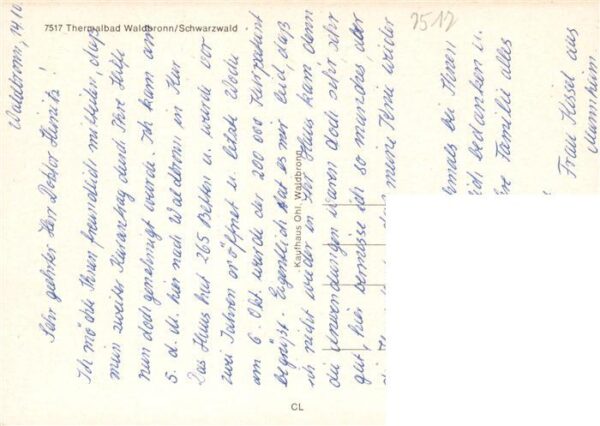 7517 Thermalbad Waldbronn/Schwarzwald
7517
Waldbronn, 14.10.
Sehr geehrter Herr Doktor Heinitz!
Ich möchte Ihnen freundlich mitteilen, daß
mein zweiter Kurantrag durch Ihre Hilfe
nun doch genehmigt wurde. Ich kam am
5. d. M. hier nach Waldbronn in Kur.
Das Haus hat 265 Betten u. wurde vor
zwei Jahren eröffnet u. letzte Woche
am 6. Okt. wurde der 200 000 Kurpatient
begrüßt. Eigentlich hat es mir leid, daß
ich nicht wieder in Ihr Haus kam denn
die Anwendungen waren doch sehr sehr
gut, hier vermisse ich so manches, aber
meine Knie wieder
mals bei Ihnen
ich bedanken u.
re Familie alles
Frau Kisel aus
Mannheim
Kaufhaus Ohl, Waldbronn
CL